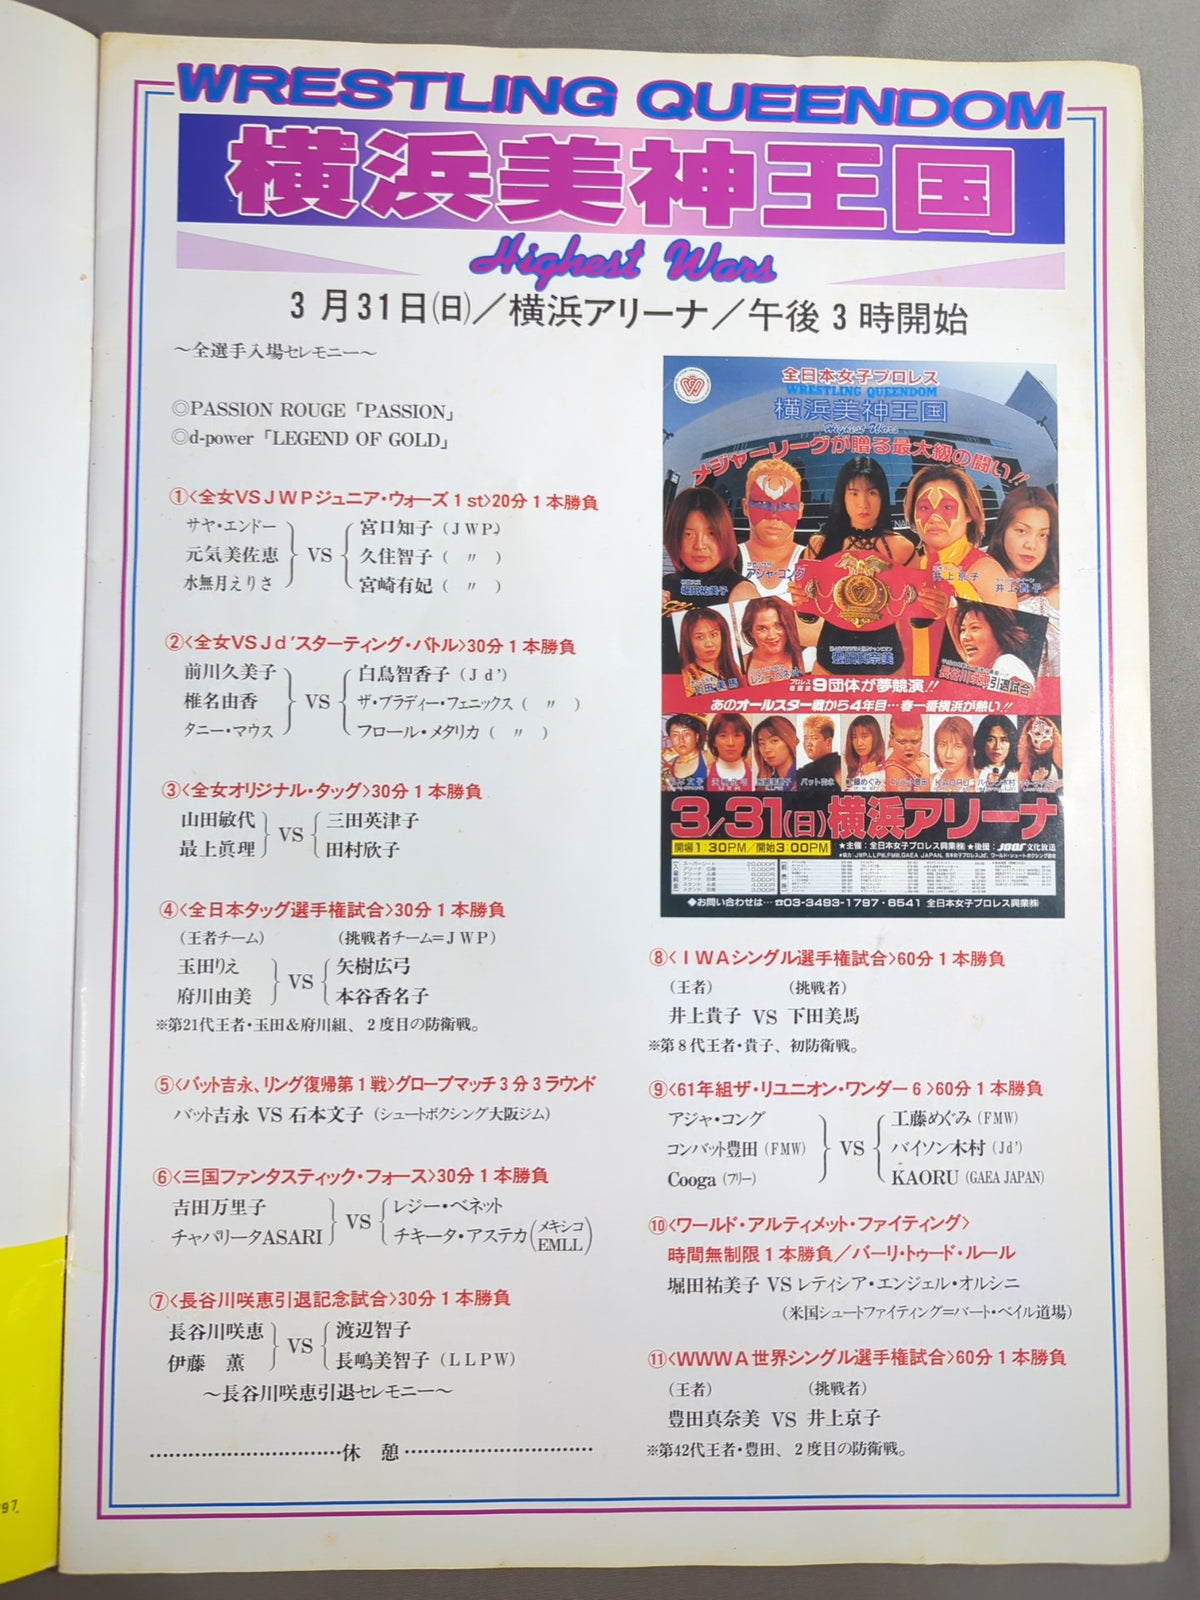 WRESTLING QUEENDOM
横浜美神王国
Highest Wars
3月31日(日)／横浜アリーナ／午後3時開始
〜全選手入場セレモニー〜
◎PASSION ROUGE「PASSION」
◎d-power「LEGEND OF GOLD」
①〈全女VSJWPジュニア・ウォーズ1st〉20分1本勝負
サヤ・エンドー
元気美佐恵
水無月えりさ
VS
宮口知子(JWP)
久住智子( 〃 )
宮崎有妃( 〃 )
②〈全女VSJd'スターティング・バトル〉30分1本勝負
前川久美子
椎名由香
タニー・マウス
VS
白鳥智香子(Jd')
ザ・ブラディー・フェニックス( 〃 )
フロール・メタリカ( 〃 )
③〈全女オリジナル・タッグ〉30分1本勝負
山田敏代
最上眞理
VS
三田英津子
田村欣子
④〈全日本タッグ選手権試合〉30分1本勝負
(王者チーム) (挑戦者チーム=JWP)
玉田りえ
府川由美
VS
矢樹広弓
本谷香名子
※第21代王者・玉田&府川組、2度目の防衛戦。
⑤〈バット吉永、リング復帰第1戦〉グローブマッチ3分3ラウンド
バット吉永 VS 石本文子(シュートボクシング大阪ジム)
⑥〈三国ファンタスティック・フォース〉30分1本勝負
吉田万里子
チャパリータASARI
VS
レジー・ベネット
チキータ・アステカ(メキシコEMLL)
⑦〈長谷川咲恵引退記念試合〉30分1本勝負
長谷川咲恵
伊藤 薫
VS
渡辺智子
長嶋美智子(LLPW)
〜長谷川咲恵引退セレモニー〜
……………………………休 憩……………………………
全日本女子プロレス
WRESTLING QUEENDOM
横浜美神王国
Highest Wars
メジャーリーグが贈る最大級の闘い!!
堀田祐美子
アジャ・コング
井上京子
井上貴子
下田美馬
レジー・ベネット
豊田真奈美
長谷川咲恵引退試合
9団体が夢競演!!
あのオールスター戦から4年目…春一番横浜が熱い!!
バット吉永
工藤めぐみ
3/31(日)横浜アリーナ
開場1:30PM／開始3:00PM
★主催:全日本女子プロレス興業㈱★後援:文化放送
◆お問い合わせは…☎03-3493-1797・6541 全日本女子プロレス興業㈱
⑧〈IWAシングル選手権試合〉60分1本勝負
(王者) (挑戦者)
井上貴子 VS 下田美馬
※第8代王者・貴子、初防衛戦。
⑨〈61年組ザ・リユニオン・ワンダー6〉60分1本勝負
アジャ・コング
コンバット豊田(FMW)
Cooga(フリー)
VS
工藤めぐみ(FMW)
バイソン木村(Jd')
KAORU(GAEA JAPAN)
⑩〈ワールド・アルティメット・ファイティング〉
時間無制限1本勝負／バーリ・トゥード・ルール
堀田祐美子 VS レティシア・エンジェル・オルシニ
(米国シュートファイティング=バート・ベイル道場)
⑪〈WWWA世界シングル選手権試合〉60分1本勝負
(王者) (挑戦者)
豊田真奈美 VS 井上京子
※第42代王者・豊田、2度目の防衛戦。
97.